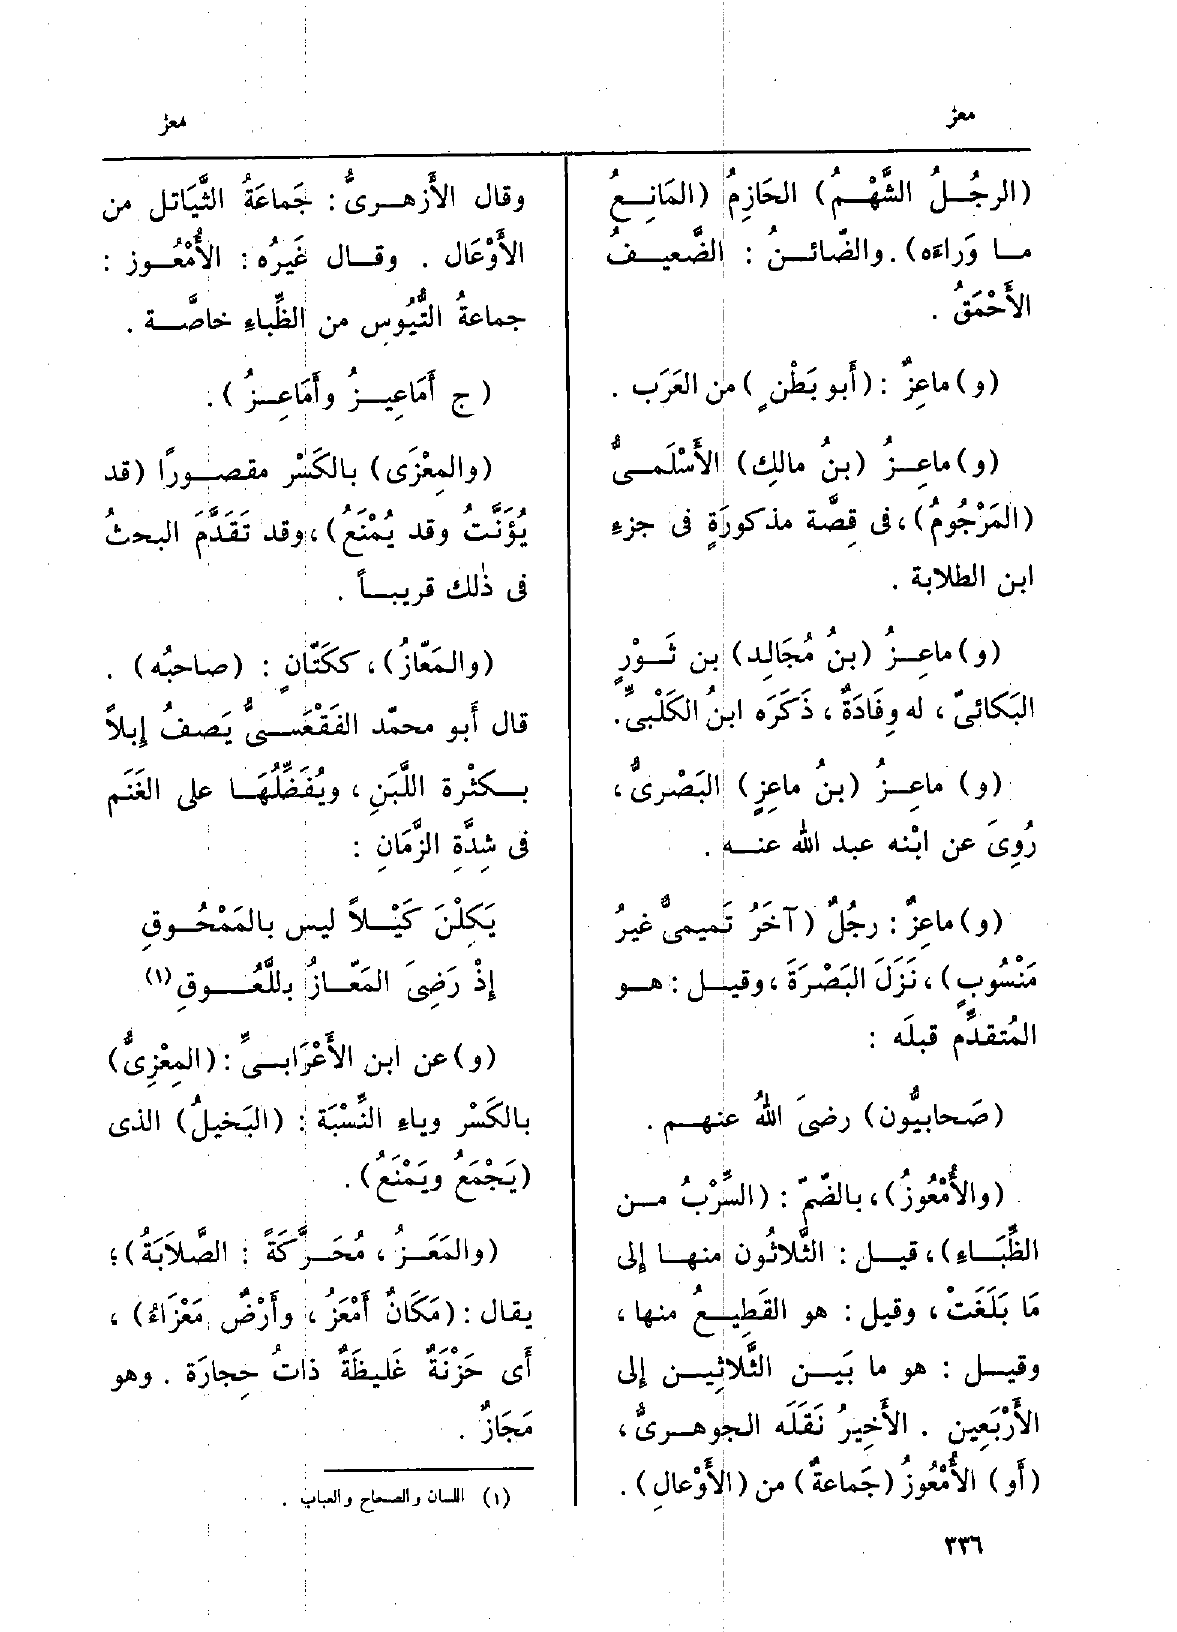 معز
معز
(الرجُلُ الشَّهْمُ) الحَازِمُ (المَانِعُ
ما وَراءَه). والضّائنُ : الضَّعيفُ
الأَحْمَقُ .
(و) ماعِزٌ : (أَبو بَطْنٍ) من العَرَب .
(و) ماعِزُ (بنُ مالِك) الأَسْلَمىُّ
(المَرْجُومُ)، فى قِصَّة مذكورَةٍ فى جزءِ
ابن الطلابة .
(و) ماعِزُ (بنُ مُجَالِد) بن ثَوْرٍ
البَكائىّ ، له وِفَادَةٌ ، ذَكَرَه ابنُ الكَلْبىِّ.
(و) ماعِزُ (بنُ ماعِزٍ) البَصْرىُّ ،
رُوِىَ عن ابْنه عبد اللّه عنه .
(و) ماعِزٌ : رجُلٌ (آخَرُ تَمِيمىٌّ غيرُ
مَنْسُوبٍ) ، نَزَلَ البَصْرَةَ ، وقيل : هو
المُتقدِّم قبلَه :
(صَحابيُّون) رضىَ اللّهُ عنهم .
(والأُمْعُوزُ)، بالضّمّ : (السِّرْبُ من
الظِّبَاءِ)، قيل : الثَّلاثُون منها إلى
مَا بَلَغَتْ ، وقيل : هو القَطِيعُ منها ،
وقيل : هو ما بَين الثَّلاثِين إلى
الأَرْبَعِين . الأَخِيرُ نَقَلَه الجوهرىُّ ،
(أَو) الأُمْعُوزُ (جَماعةٌ) من (الأَوْعالِ) .
وقال الأَزهرىُّ : جَماعَةُ الثَّيَاتل من
الأَوْعَال . وقال غَيرُه : الأُمْعُوز :
جماعةُ التُّيُوس من الظِّباءِ خاصَّة .
(ج أَمَاعِيزُ وأَمَاعِزُ) .
(والمِعْزَى) بالكَسْر مقصورًا (قد
يُؤَنَّثُ وقد يُمْنَعُ)، وقد تَقَدَّمَ البحثُ
فى ذٰلك قريباً .
(والمَعّازُ)، ككَتّانٍ : (صاحبُه) .
قال أَبو محمّد الفَقْعَسىُّ يَصفُ إبلاً
بكثْرة اللَّبَنِ ، ويُفَضِّلُهَا على الغَنَم
فى شِدَّةِ الزَّمَانِ :
يَكِلْنَ كَيْلاً ليس بالمَمْحُوقِ
إذْ رَضِىَ المَعّازُ بِاللَّعُوقِ (١)
(و) عن ابن الأَعْرَابىِّ : (المِعْزِىُّ)
بالكَسْر وياءِ النِّسْبَة : (البَخيلُ) الذى
(يَجْمَعُ ويَمْنَعُ) .
(والمَعَزُ ، مُحَرَّكَةً : الصَّلاَبَةُ)؛
يقال : (مَكَانٌ أَمْعَزُ ، وأَرْضٌ مَعْزَاءُ) ،
أَى حَزْنَةٌ غَلِيظَةٌ ذاتُ حِجارَة . وهو
مَجَازٌ .
(١) اللسان والصحاح والعباب .
٣٣٦